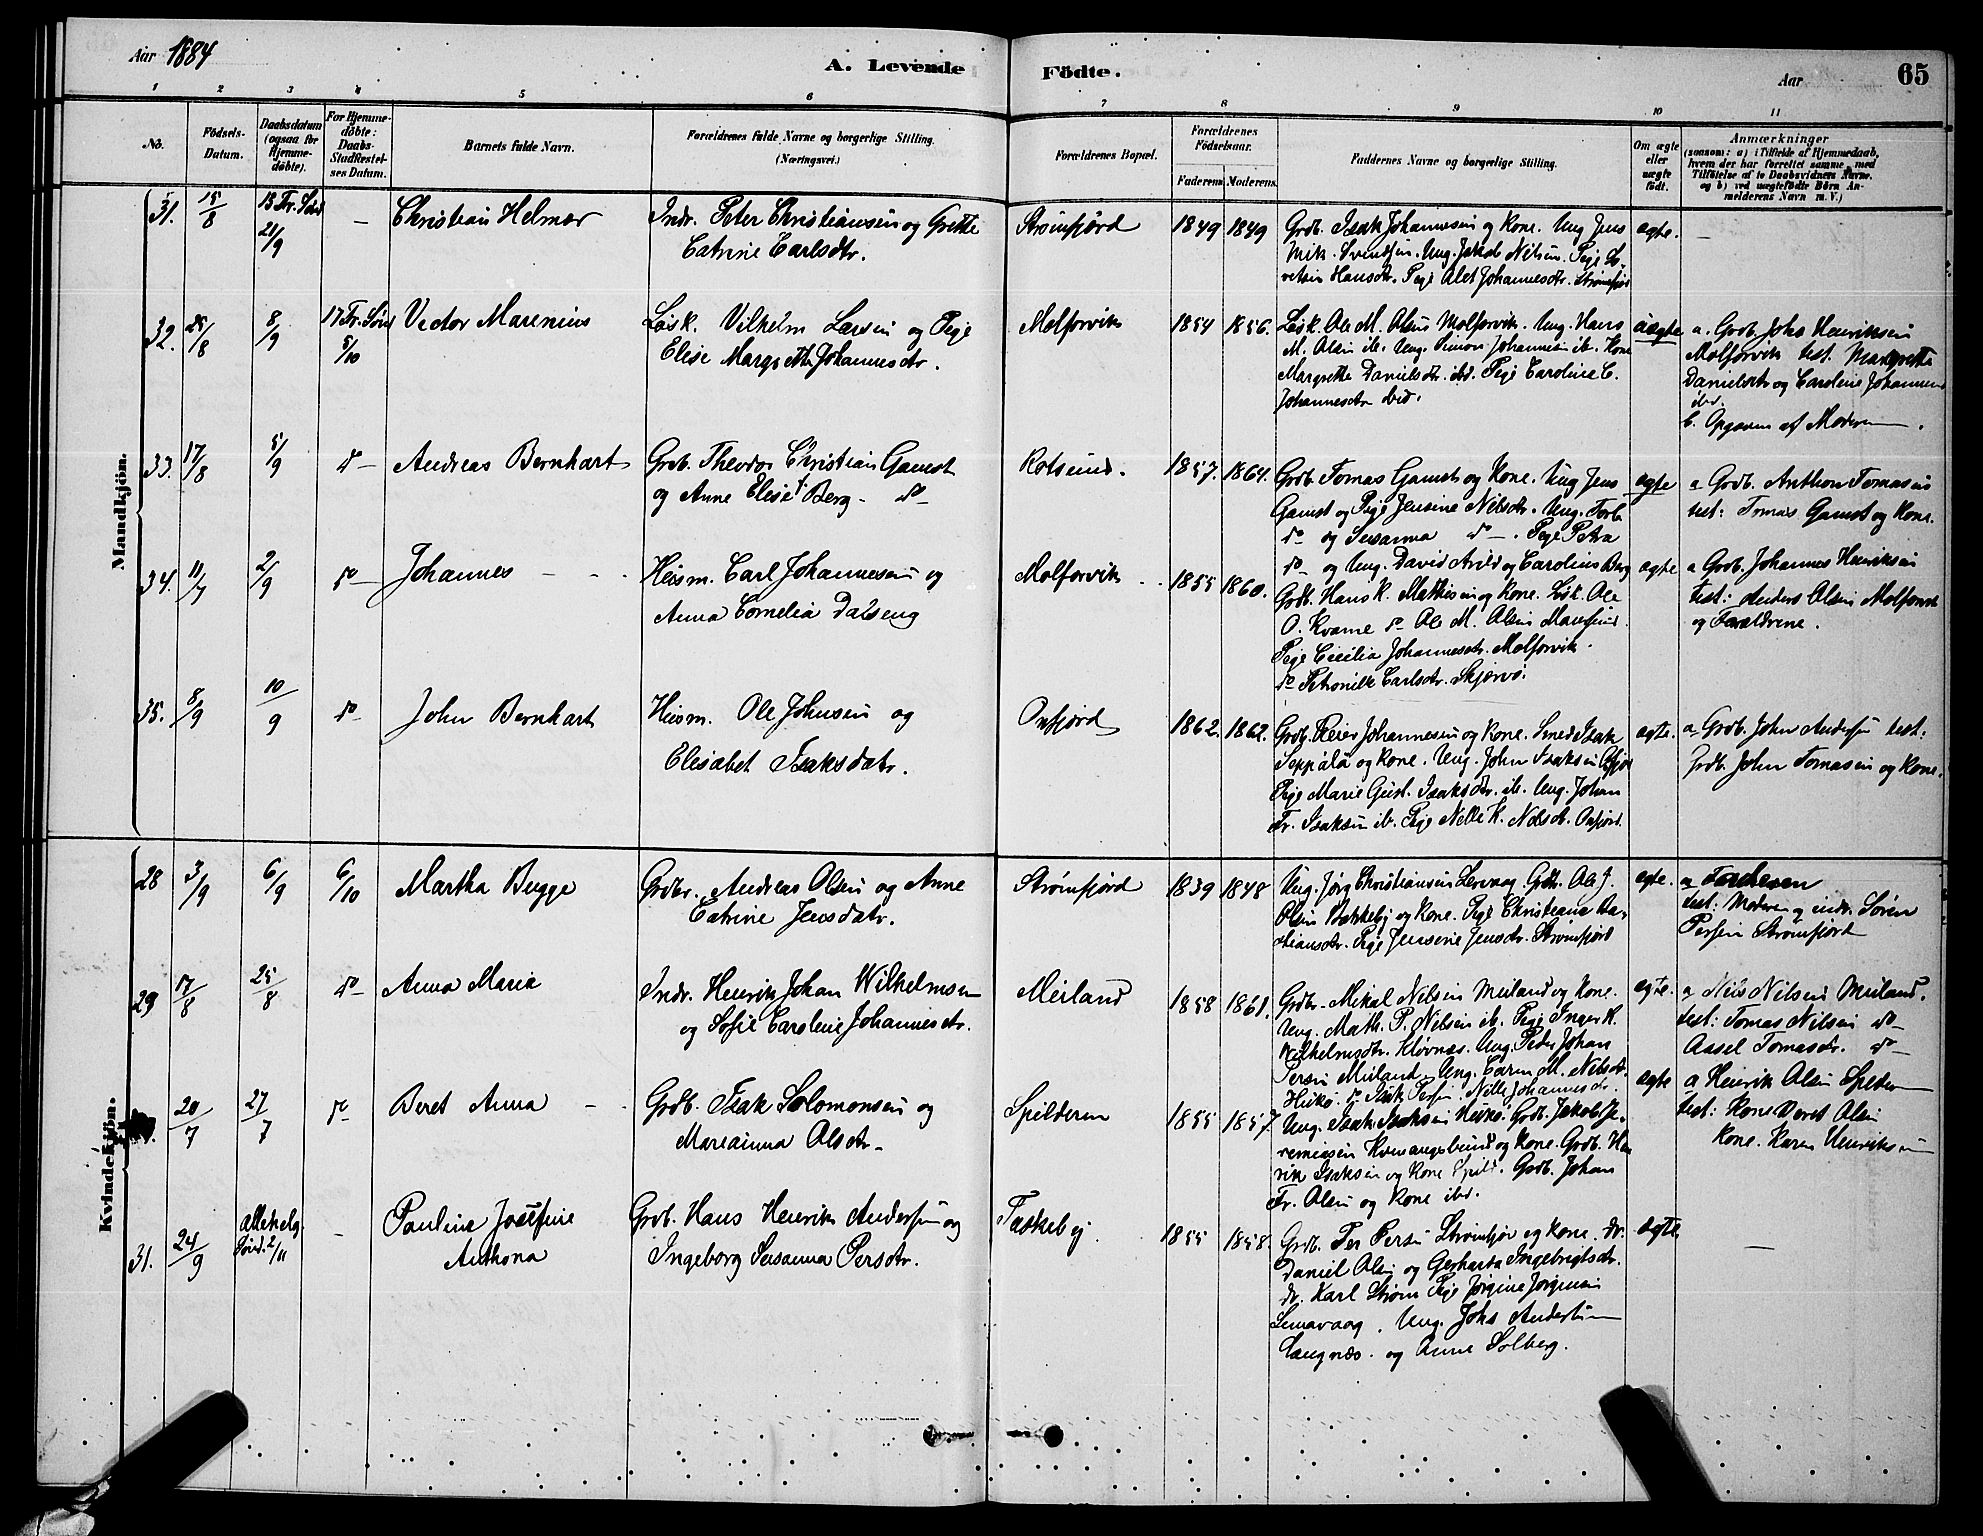 Aar 1884
A. Levende
Födte.
Aar
65
1
2
3
4
5
6
7
8
9
10
11
No.
Födsels-
Datum.
Daabsdatum
(ogsaa for
Hjemme-
döbte).
For Hjemme-
döbte:
Daabs-
Stadfæstel-
ses Datum.
Barnets fulde Navn.
Forældrenes fulde Navne og borgerlige Stilling.
(Næringsvei.)
Forældrenes Bopæl.
Forældrenes
Födselsaar.
Faderens
Moderens
Faddernes Navne og borgerlige Stilling.
Om ægte
eller
uægte
födt.
Anmærkninger
(saasom: a) i Tilfælde af Hjemmedaab,
hvem der har forrettet samme, med
Tilföielse af to Daabsvidners Navne,
og b) ved uægtefödte Börn An-
melderens Navn m. V.)
Mandkjön.
31.
15/8
13 Fr. Sönd
21/9
—
Christian Helmar
Indr. Peter Christiansen og Grette
Catrine Carlsdtr.
Strømfjord
1849
1849
Grdb. Isak Johannesen og Kone. Ung. Jens
Mik. Svendsen. Ung. Jakob Nilsen. Pige Lo-
Hansdtr. Pige Alet Johannesdtr. Strømfjor
ægte.
—
32.
25/8
8/9
17 Fr. Sön
5/10
Victor Marenius
Løsk. Vilhelm Larsen og Pige
Elise Margrethe Johannesdtr.
Molforvik
1854
1856.
Løsk. Ole M. Olsen Molforvik. Ung. Hans
M. Olsen ib. Ung. Simon Johannesen ib. Kone
Margrethe Danielsdtr. ibd. Pige Caroline C.
Johannesdtr ibid.
uægte
a. Grdb. Johs Henriksen
Molforvik test. Margrette
Danielsdtr og Caroline Johannesd
ibd.
b. Opgaven af Moderen.
33.
17/8
5/9
do
Andreas Bernhart
Grdb. Theodor Christian Gamst
og Anne Elise Berg. do
Rotsund.
1857.
1864.
Grdb. Tomas Gamst og Kone. Ung Jens
Gamst og Pige Jensine Nilsdtr. Ung. Torb.
do og Susanna do. Pige Petra
do og Ung. David Arild og Carolius Berg
ægte
a Grdb. Anthon Tomasen
test: Tomas Gamst og Kone.
34.
11/7
2/9
do
Johannes
Huusm. Carl Johannesen og
Anna Cornelia Dalseng
Molforvik
1855
1860.
Grdb. Hans K. Mathisen og Kone. Løsk. Ole
O. Kvame do Ole M. Olsen
Pige Cecilia Johannesdtr. Molforvik.
do Petronille Carlsdtr. Skjervø.
ægte
a Grdb. Johannes Henriksen
test: Anders Olsen Molforvik
og Forældrene.
35.
8/9
10/9
do
John Bernhart
Huusm. Ole Johnsen og
Elisabet Isaksdatr.
Oxfjord
1862.
1862.
Grdb. Peier Johannesen og Kone. Smed Isak
Seppälä og Kone. Ung. John Isaksen Oxfjor
Pige Marie Gust. Isaksdtr. ib. Ung. Johan
Fr. Isaksen ib. Pige Nelle K. Nilsdt. Oxfjord.
ægte.
a Grdb. John Anders test.
Grdb. John Tomasen og Kone.
Kvindekjön.
28
3/9
6/9
6/10
Martha Bugge
Grdbr. Andreas Olsen og Anne
Catrine Jensdatr.
Strømfjord
1839
1848
Ung. Jørg Christiansen Lervaag. Grdb. Ole J.
Olsen Taskeby og Kone. Pige Christiane Ba-
stiansdtr. Pige Jensine Jensdtr. Strømfjord
ægte.
a Faderen
test: Moderen og indr. Sören
Persen Strömfjord
29
17/8
25/8
do
Anna Maria
Indr. Henrik Johan Wilhelmsen
og Sofie Caroline Johannesdtr.
Meiland
1858
1861.
Grdbr. Mikal Nilsen Meiland og Kone.
Ung. Math. P. Nilsen ib. Pige Inger K.
Wilhelmsdtr. Kløvnæs. Ung. Peder Johan
Persen Meiland, Ung. Caren M. Nilsdtr.
Heikø. do Isak Persen, Nille Johannesdtr.
ægte.
a Nils Nilsen Meiland.
test: Tomas Nilsen do
Aasel Tomasdtr. do
20/7
27/7
do
Beret Anna
Grdb. Isak Solomonsen og
Marianna Olsdtr.
Spilderen
1855
1857
Ung. Isak Isaksen Heikø. Grdb. Jakob Je-
remiasen Kvænangsbund og Kone. Grdb. Hen
rik Isaksen og Kone Spild. Grdb. Johan
Fr. Olsen og Kone ibd.
ægte
a Henrik Olsen Spilderen
test: Kone Beret Olsen
Kone. Karen Henriksen
31.
24/9
Allehelg.
Sönd. 2/11
-
Pauline Josefine
Anthona
Grdb. Hans Henrik Andersen og
Ingeborg Susanna Persdtr.
Taskeby
1855
1858.
Grdb. Per Persen Strømfjor og Kone. do.
Daniel Olsen og Gerharta Ingebrigtsdtr.
do. Karl Strøm Pige Jørgine Jørgensen
Lemavaag. Ung. Johs Andersen
Langnæs. og Anne Solberg.
ægte.
—